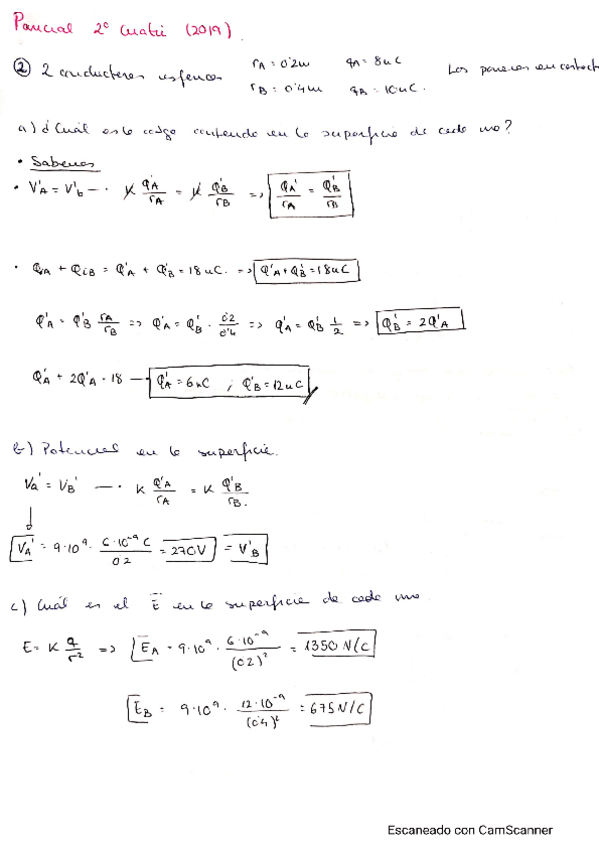 Parcial 2º Cuatri (2019).
② 2 conductores esferas rA = 0'2m qA = 8uC Los ponemos en contacto
rB = 0'4m qB = 10uC.
a) ¿Cuál es la carga contenida en la superficie de cada uno?
• Sabemos
• V'A = V'b —· K Q'A/rA = K Q'B/rB => QA'/rA = Q'B/rB
• QiA + QiB = Q'A + Q'B = 18uC. => Q'A + Q'B = 18uC
Q'A = Q'B rA/rB => Q'A = Q'B · 0'2/0'4 => Q'A = Q'B 1/2 => Q'B = 2Q'A
Q'A + 2Q'A = 18 — Q'A = 6uC ; Q'B = 12uC
b) Potencial en la superficie.
Va' = VB' —· K Q'A/rA = K Q'B/rB.
↓
VA' = 9·10⁹ · 6·10⁻⁹ C/0'2 = 270V = V'B
c) Cuál es el E en la superficie de cada uno.
E = K q/r² => EA = 9·10⁹ · 6·10⁻⁹/(0'2)² = 1350 N/C
EB = 9·10⁹ · 12·10⁻⁹/(0'4)² = 675 N/C
Escaneado con CamScanner